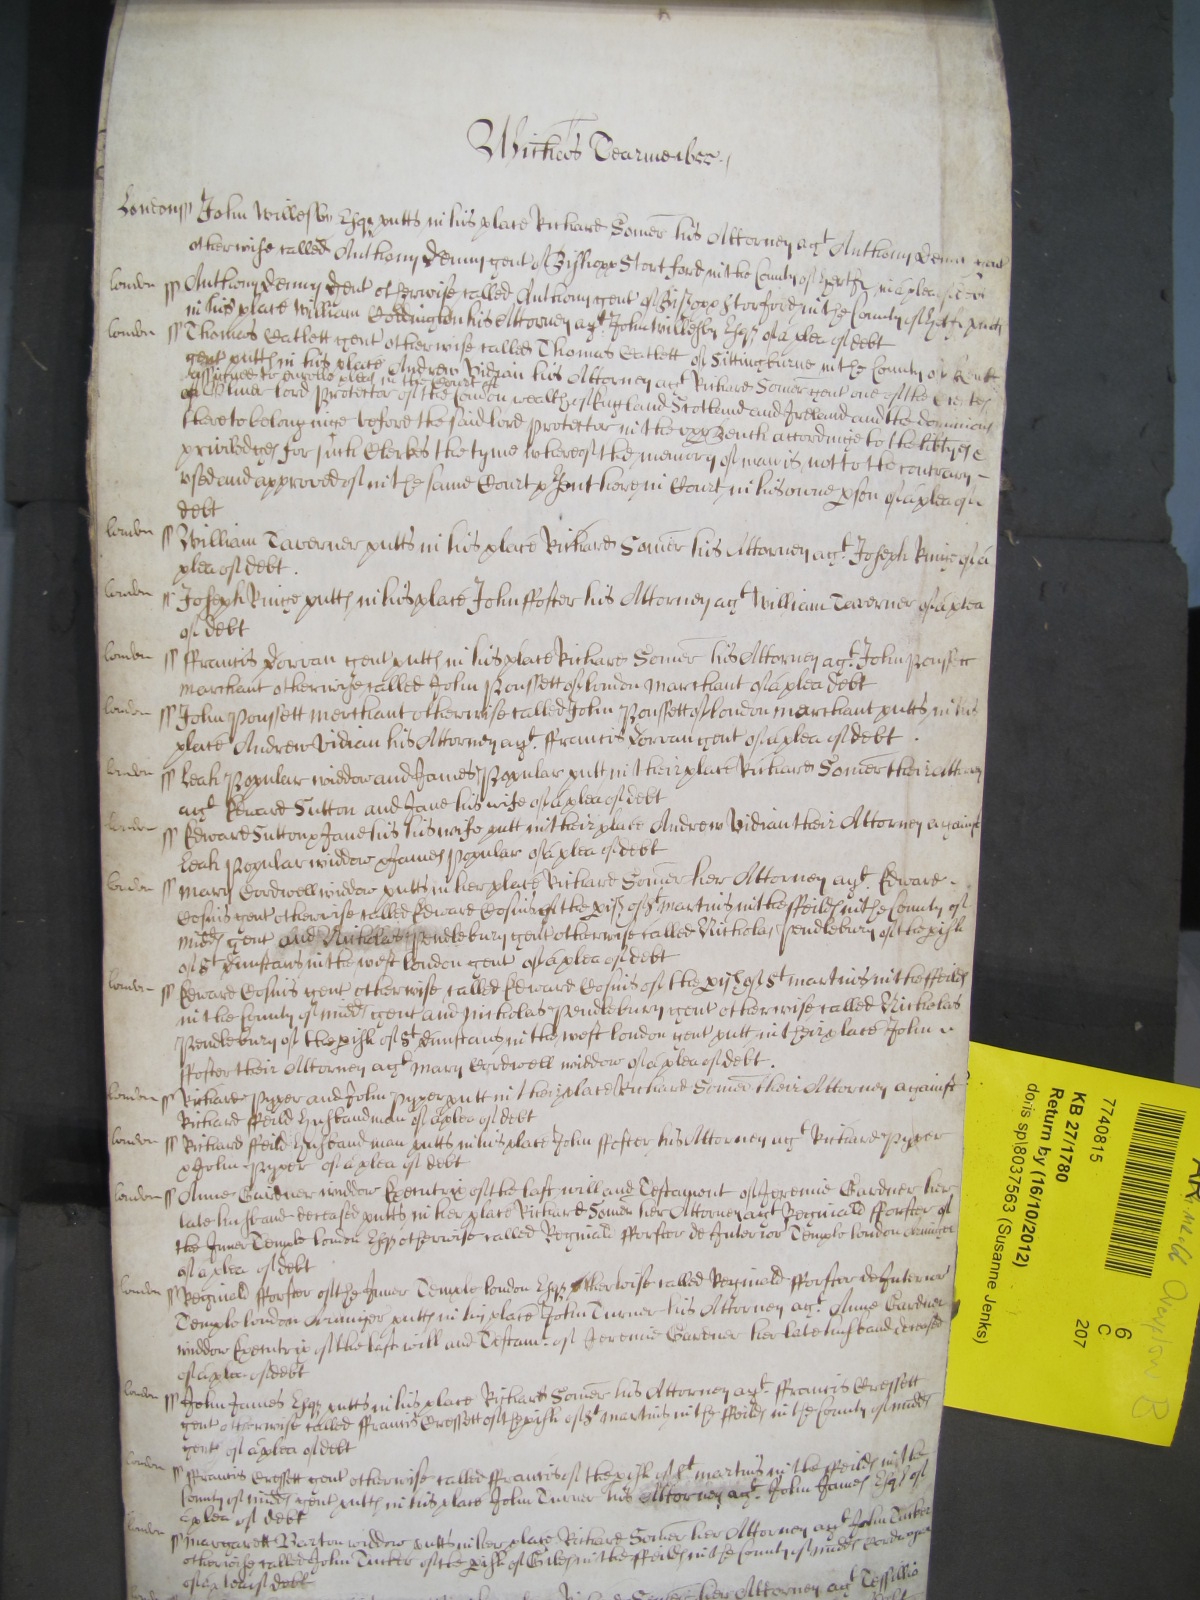 Michas Tearme 1655
London ss John Willesby Esqr putts in his place Richard Somer his Attorney agt Anthony Denny gent
otherwise called Anthony Denny gent of Bishopp Stortford in the County of Hertf in a plea of debt
london ss Anthony Denny Gent otherwise called Anthony gent of Bishopp Stortford in the County of Hertf putts
in his place William Eddington his Attorney agt John Willesby Esqr of a plea of debt
london ss Thomas Catlett gent otherwise called Thomas Catlett of Sittingburne in the County of Kent
gent putts in his place Andrew Vidian his Attorney agt Richard Somer gent one of the Clerkes
assigned to enrolle pleas in the Court of
Oliver lord Protector of the Comon wealth of England Scotland and Ireland and the dominions
there to belonginge before the said lord Protector in the upp Bench accordinge to the libtyes &
priviledges for such Clerkes the tyme whereof the memory of man is not to the contrary
used and approved of in the same Court psent here in Court in his owne pson of a plea of
debt
london ss William Taverner putts in his place Richard Somer his Attorney agt Joseph Kinge of a
plea of debt .
london ss Joseph Kinge putts in his place John ffoster his Attorney agt William Taverner of a plea
of debt
london ss ffrancis Dorvan gent putts in his place Richard Somer his Attorney agt John Poussett
marchant otherwise called John Poussett of london Marchant of a plea debt
london ss John Poussett merchant otherwise called John Poussett of london marchant putts in his
place Andrew Vidian his Attorney agt ffrancis Dorvan gent of a plea of debt .
london ss Leah Popular widdow and James Popular putt in their place Richard Somer their Attorney
agt Edward Sutton and Jane his wife of a plea of debt
london ss Edward Sutton & Jane his his wife putt in their place Andrew Vidian their Attorney against
Leah Popular widdow & James Popular of a plea of debt
london ss Mary Cordwell widdow putts in her place Richard Somer her Attorney agt Edward
Cosins gent otherwise called Edward Cosins of the pish of St Martins in the ffeilds in the County of
Midds gent and Nicholas Pendlebury gent otherwise called Nicholas Pendlebury of the pish
of St Dunstans in the west london gent of a plea of debt
london ss Edward Cosins gent otherwise called Edward Cosins of the pish of St Martins in the ffeilds
in the County of Midds gent and Nicholas Pendlebury gent otherwise called Nicholas
Pendlebury of the pish of St Dunstans in the west london gent putt in their place John
ffoster their Attorney agt Mary Cordwell widdow of a plea of debt .
london ss Richard Pyper and John Pyper putt in their place Richard Somer their Attorney against
Richard ffeild husbandman of a plea of debt
london ss Richard ffeild husbandman putts in his place John ffoster his Attorney agt Richard Pyper
& John Pyper of a plea of debt
london ss Anne Gardner widdow Executrix of the last will and Testament of Jeremie Gardner her
late husband deceased putts in her place Richard Somer her Attorney agt Reginald fforster of
the Inner Temple london Esqr otherwise called Reginald fforster de Interior Templo london Arminger
of a plea of debt
london ss Reginald fforster of the Inner Temple london Esqr otherwise called Reginald fforster de Interior
Templo london Arminger putts in his place John Turner his Attorney agt Anne Gardner
widdow Executrix of the last will and Testamt of Jeremie Gardner her late husband deceased
of a plea of debt
london ss John James Esqr putts in his place Richard Somer his Attorney agt ffrancis Cressett
gent otherwise called ffrancis Cressett of the pish of St Martins in the ffeilds in the County of Midds
gent of a plea of debt
london ss ffrancis Cressett gent otherwise called ffrancis of the pish of St Martins in the ffeilds in the
County of Midds gent putts in his place John Turner his Attorney agt John James Esqr of
a plea of debt
london ss Margarett Barton widdow putts in her place Richard Somer her Attorney agt John Tinker
otherwise called John Tinker of the pish of Giles in the ffeilds in the County of Midds Cordwayner
of a plea of debt
her Attorney agt
7740815
KB 27/1780
Return by (16/10/2012)
doris sp\8037563 (Susanne Jenks)
6
C
207
B